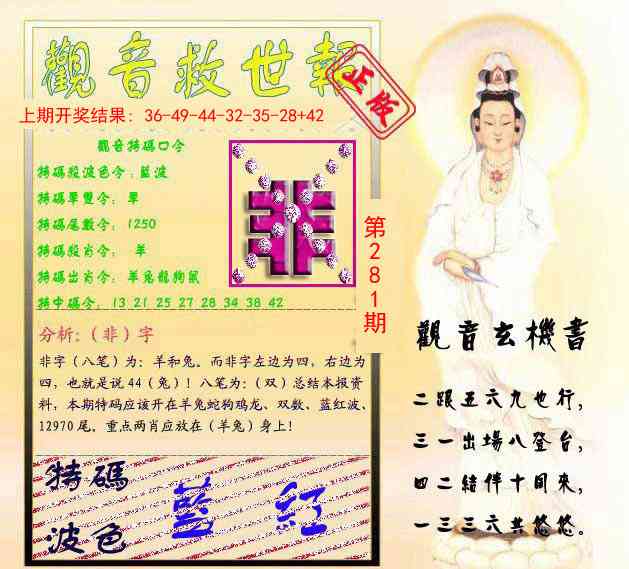 觀音救世報
正版
上期开奖结果: 36-49-44-32-35-28+42
觀音特碼口令
特碼殺波色令:藍波
特碼單雙令: 單
特碼尾數令: 1250
特碼殺肖令: 羊
特碼出肖令: 羊兔龍狗鼠
特中碼令: 13 21 25 27 28 34 38 42
非
第281期
分析:（非）字
非字（八笔）为: 羊和兔。而非字左边为四，右边为
四，也就是说 44（兔）！八笔为:（双）总结本报资
料，本期特码应该开在羊兔蛇狗鸡龙、双数、蓝红波、
12970 尾。重点两肖应放在（羊兔）身上！
特碼
波色
藍 紅
觀音玄機書
二跟五六九也行，
三一出場八登台，
四二結伴十同來，
一三三六共悠悠。